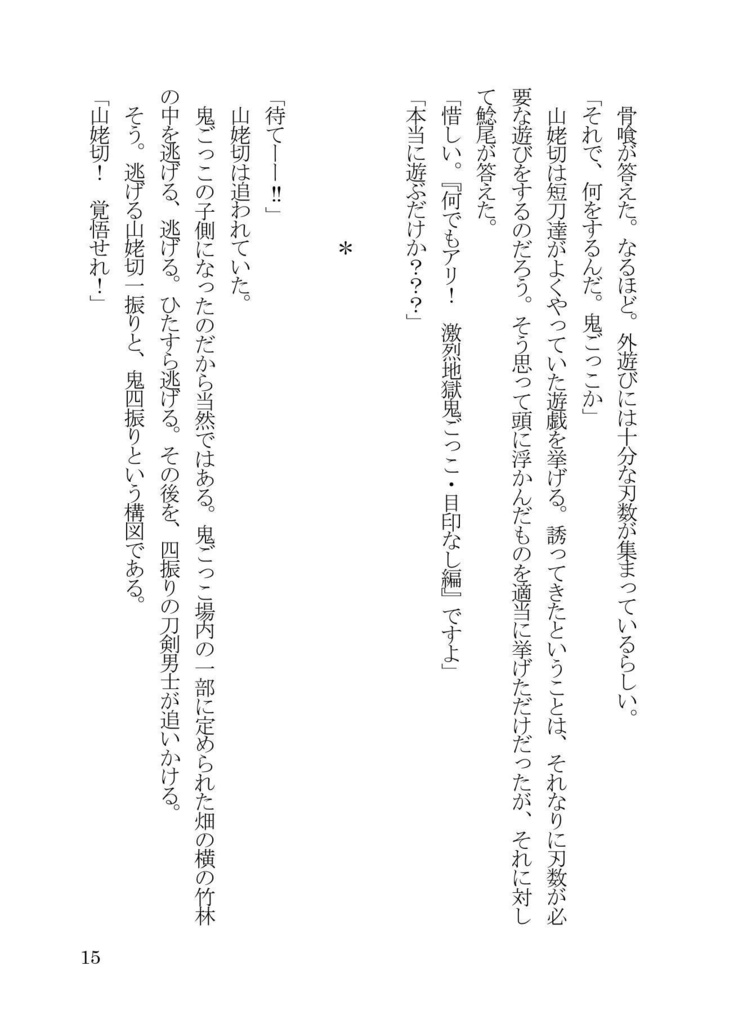 骨喰が答えた。なるほど。外遊びには十分な刃数が集まっているらしい。
「それで、何をするんだ。鬼ごっこか」
山姥切は短刀達がよくやっていた遊戯を挙げる。誘ってきたということは、それなりに刃数が必
要な遊びをするのだろう。そう思って頭に浮かんだものを適当に挙げただけだったが、それに対し
て鯰尾が答えた。
「惜しい。『何でもアリ！　激烈地獄鬼ごっこ・目印なし編』ですよ」
「本当に遊ぶだけか？？？」
＊
「待てーー‼」
山姥切は追われていた。
鬼ごっこの子側になったのだから当然ではある。鬼ごっこ場内の一部に定められた畑の横の竹林
の中を逃げる、逃げる。ひたすら逃げる。その後を、四振りの刀剣男士が追いかける。
そう。逃げる山姥切一振りと、鬼四振りという構図である。
「山姥切！　覚悟せれ！」
15